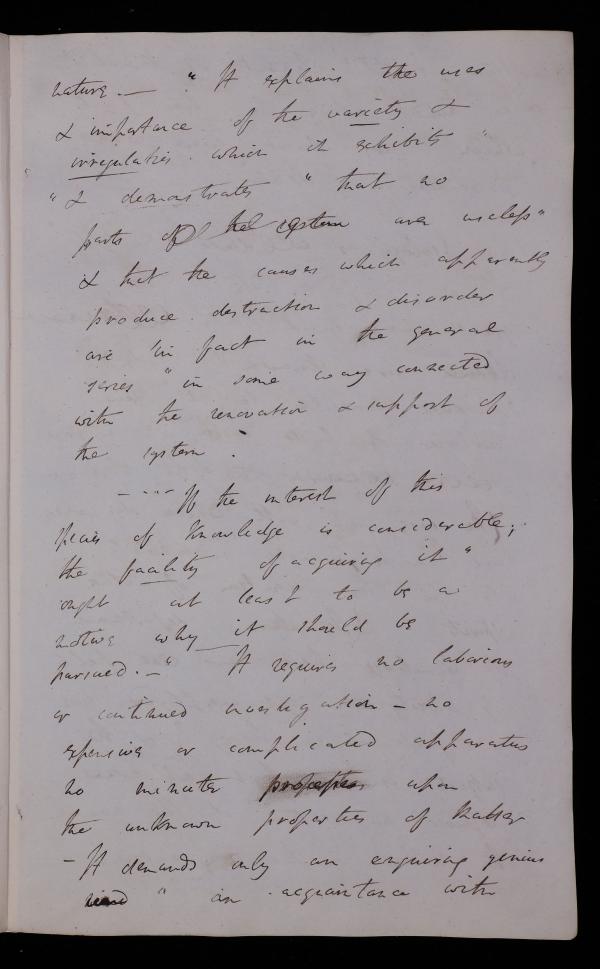 nature. — " It explains the uses
& importance of the variety &
irregulaties. which it exhibits "
" & demonstrates " that no
parts of the system are useless "
& that the causes which apparently
produce destruction & disorder
are in fact in the general
series " in some way connected
with the renovation & support of
the system.
— " " " If the interest of this
species of knowledge is considerable;
the facility of acquiring it "
ought at least to be a
motive why it should be
pursued. — " It requires no laborious
or continued investigation — no
expensive or complicated apparatus
no minuter upon
the unknown properties of Matter
— It demands only an enquiring genius
" an acquaintance with